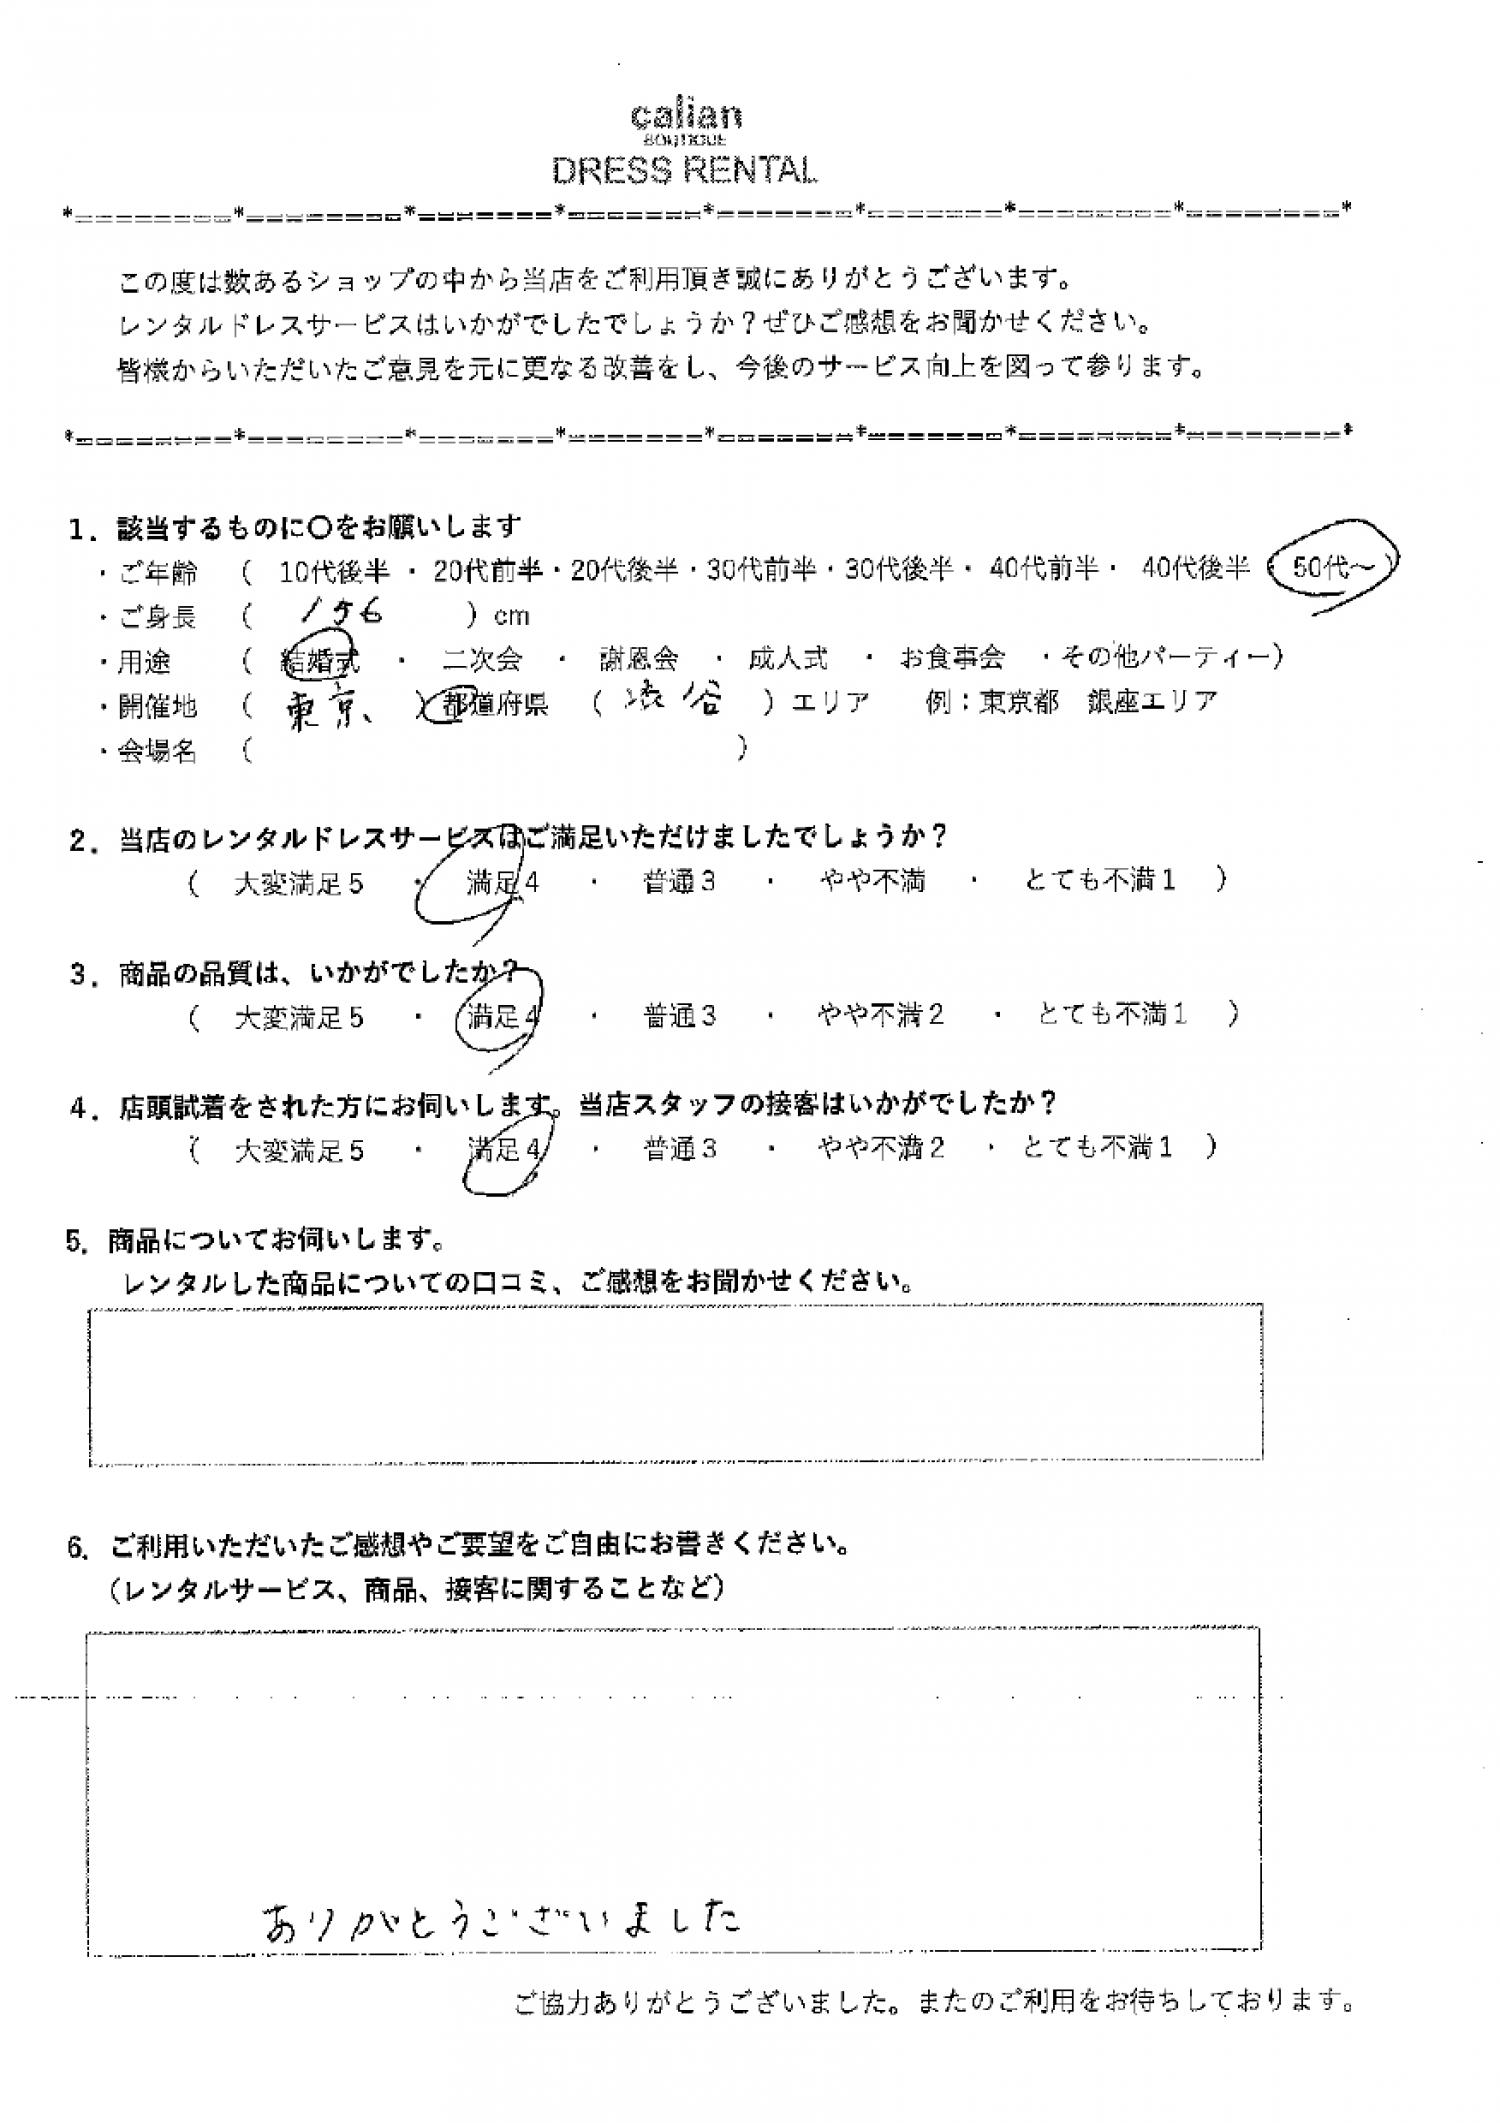 calian
BOUTIQUE
DRESS RENTAL
*========*========*=======*=======*=======*=======*========*========*
この度は数あるショップの中から当店をご利用頂き誠にありがとうございます。
レンタルドレスサービスはいかがでしたでしょうか？ぜひご感想をお聞かせください。
皆様からいただいたご意見を元に更なる改善をし、今後のサービス向上を図って参ります。
*========*========*=======*=======*=======*=======*========*========*
1．該当するものに〇をお願いします
・ご年齢 （ 10代後半 ・ 20代前半・20代後半・30代前半・30代後半・ 40代前半・ 40代後半 ・ 50代～ ）
・ご身長 （ 156 ）cm
・用途 （ 結婚式 ・ 二次会 ・ 謝恩会 ・ 成人式 ・ お食事会 ・その他パーティー）
・開催地 （ 東京、 ）都道府県 （ 渋谷 ）エリア 例：東京都 銀座エリア
・会場名 （ ）
2．当店のレンタルドレスサービスはご満足いただけましたでしょうか？
（ 大変満足５ ・ 満足４ ・ 普通３ ・ やや不満 ・ とても不満１ ）
3．商品の品質は、いかがでしたか？
（ 大変満足５ ・ 満足４ ・ 普通３ ・ やや不満２ ・ とても不満１ ）
4．店頭試着をされた方にお伺いします。当店スタッフの接客はいかがでしたか？
（ 大変満足５ ・ 満足４ ・ 普通３ ・ やや不満２ ・ とても不満１ ）
5．商品についてお伺いします。
レンタルした商品についての口コミ、ご感想をお聞かせください。
6．ご利用いただいたご感想やご要望をご自由にお書きください。
（レンタルサービス、商品、接客に関することなど）
ありがとうございました
ご協力ありがとうございました。またのご利用をお待ちしております。